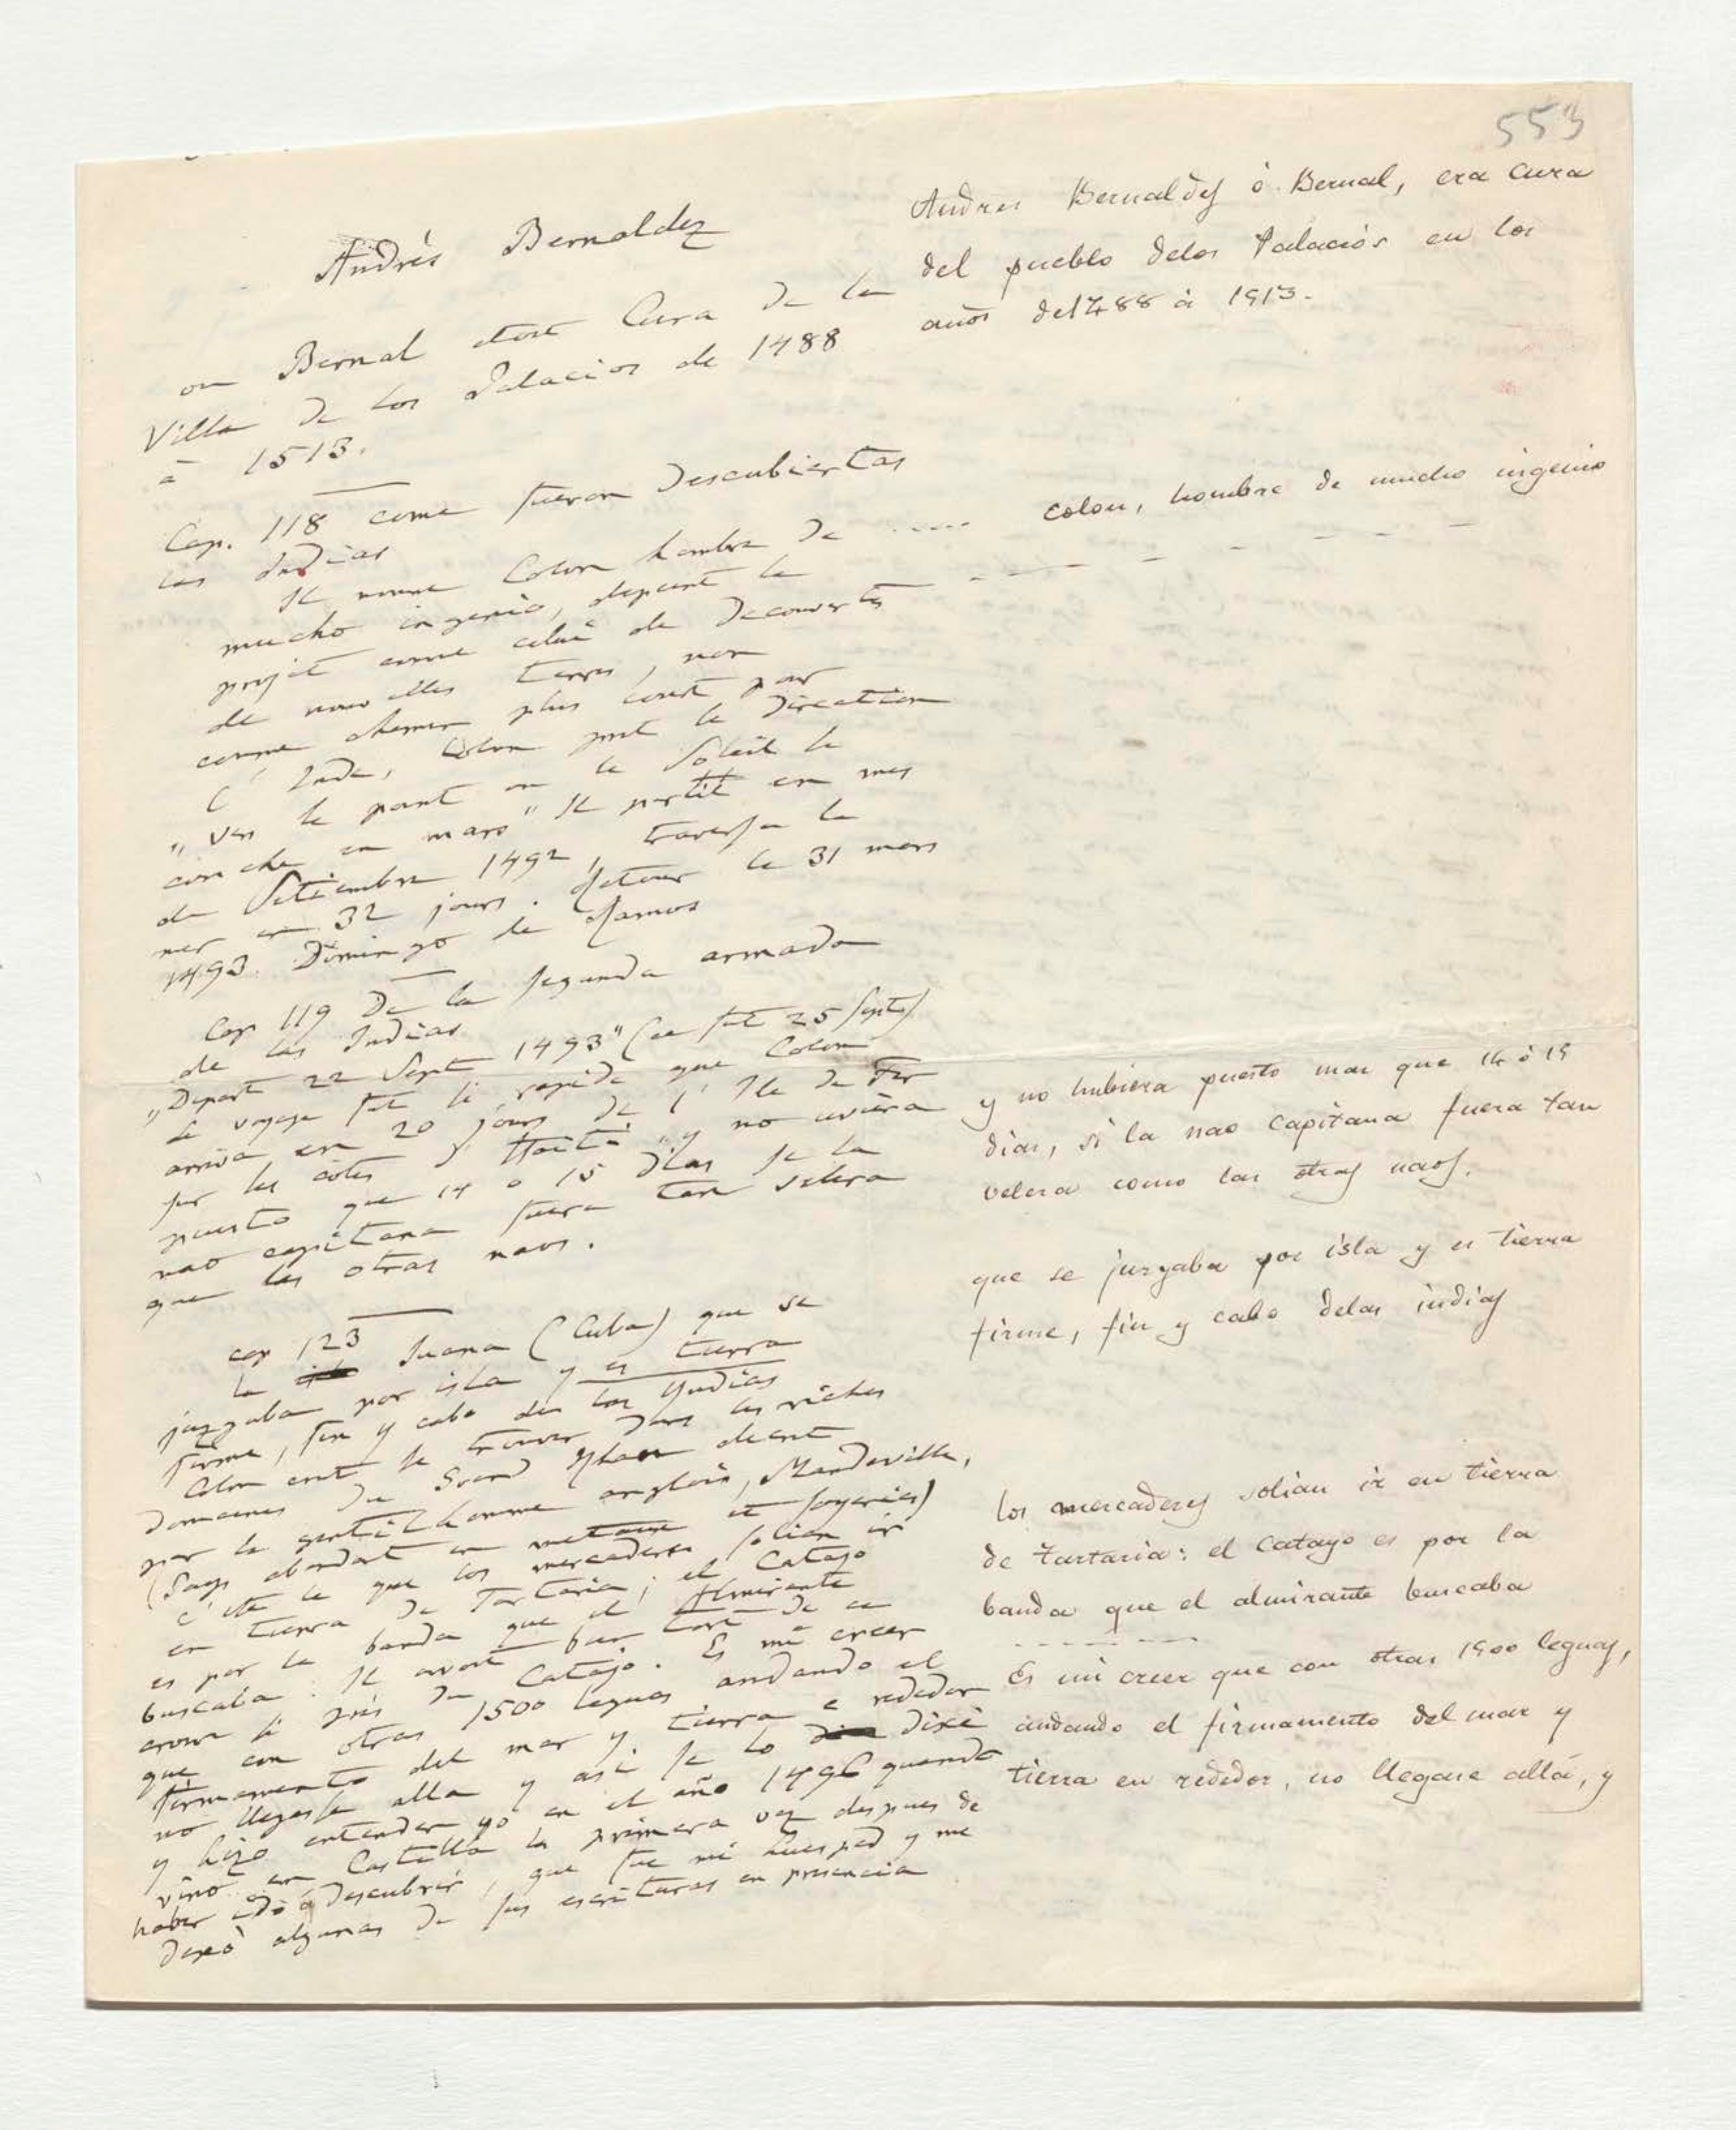 553
Andrés Bernaldez
ou Bernal etoit Cura de la
Villa de los Palacios de 1488
a 1513.
Cap. 118 come fueron Descubiertas
las Indias
Il nomme Colon hombre de
mucho ingenio, depeint le
projet comme celui de Decouvertes
de nouvelles terres, non
comme chemin plus court par
l'Inde, Colon prit la Direction
"vers le point ou le Soleil se
couche en mars" Il partit en mes
de Setiembre 1492, traversa la
mer en 32 jours. Retour le 31 mars
1493. Domingo de Ramos
Cap 119 De la segunda armada
de las Indias
"Depart 22 Sept 1493" (ce fut 25 Sept)
Le voyage fut si rapide que Colon
arriva en 20 jours de l'Ile de Fer
sur les cotes d'Haiti "y no uviera
puesto que 14 o 15 dias se la
nao capitana fuera tan velera
que las otras naos.
cap 123
la Juana (Cuba) que se
juzgaba por isla y es tierra
firme, fin y cabo de las Yndias
Colon crut se trouver dans les riches
Domaines du Grand Khan decrit
par le gentilhomme anglois, Mandeville,
(Pays abondant en metaux et soyeries)
C'etoit le que los mercaderes solian ir
en tierra de Tartaria; el Catayo
es por la banda que el Almirante
buscaba. Il avoit bien tort de se
croire si près du Catayo. Es mi creer
que con otras 1500 leguas andando el
firmamento del mar y tierra e rededor
no llegasse alla y asi se lo dixè
y hizo entender yo en el año 1496 quando
vino en Castilla la primera vez despues de
haber ido á Descubrir, que fue mi huesped y me
dexò algunas de sus escrituras en presencia
Andres Bernaldes ó Bernal, era Cura
del pueblo delos Palacios en los
años del488 á 1513.
..... colon, hombre de mucho ingenio
y no hubiera puesto mas que 14 ó 15
dias, si la nao capitana fuera tan
velera como las otras naos.
que se juzgaba por isla y es tierra
firme, fin y cabo delas indias
los mercaderes solian ir en tierra
de tartaria: el Catayo es por la
banda que el almirante buscaba
Es mi creer que con otras 1500 leguas,
andando el firmamento del mar y
tierra en rededor, no llegase allá, y